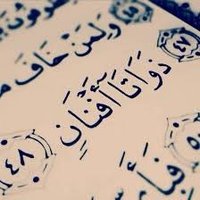 وَلِمَنْ خَافَ
٤٧ ذَوَاتَآ أَفْنَانٍ ٤٨
فَبِأَيِّ